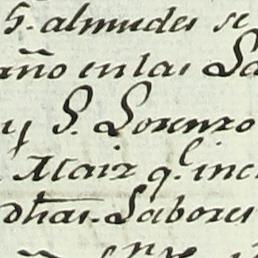 S. almudes se
año en las La
y S. Lorenzo
Maiz q.e inc
dhas. Labores